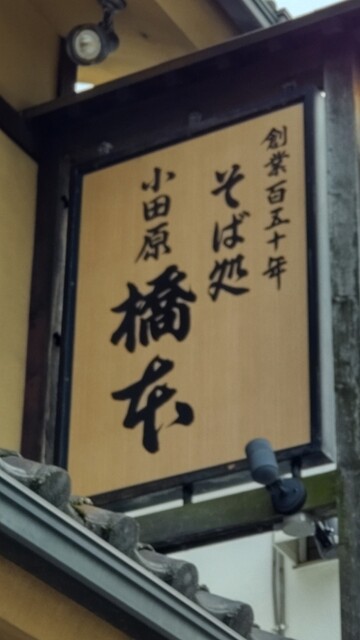 創業百五十年
そば処
小田原
橋本